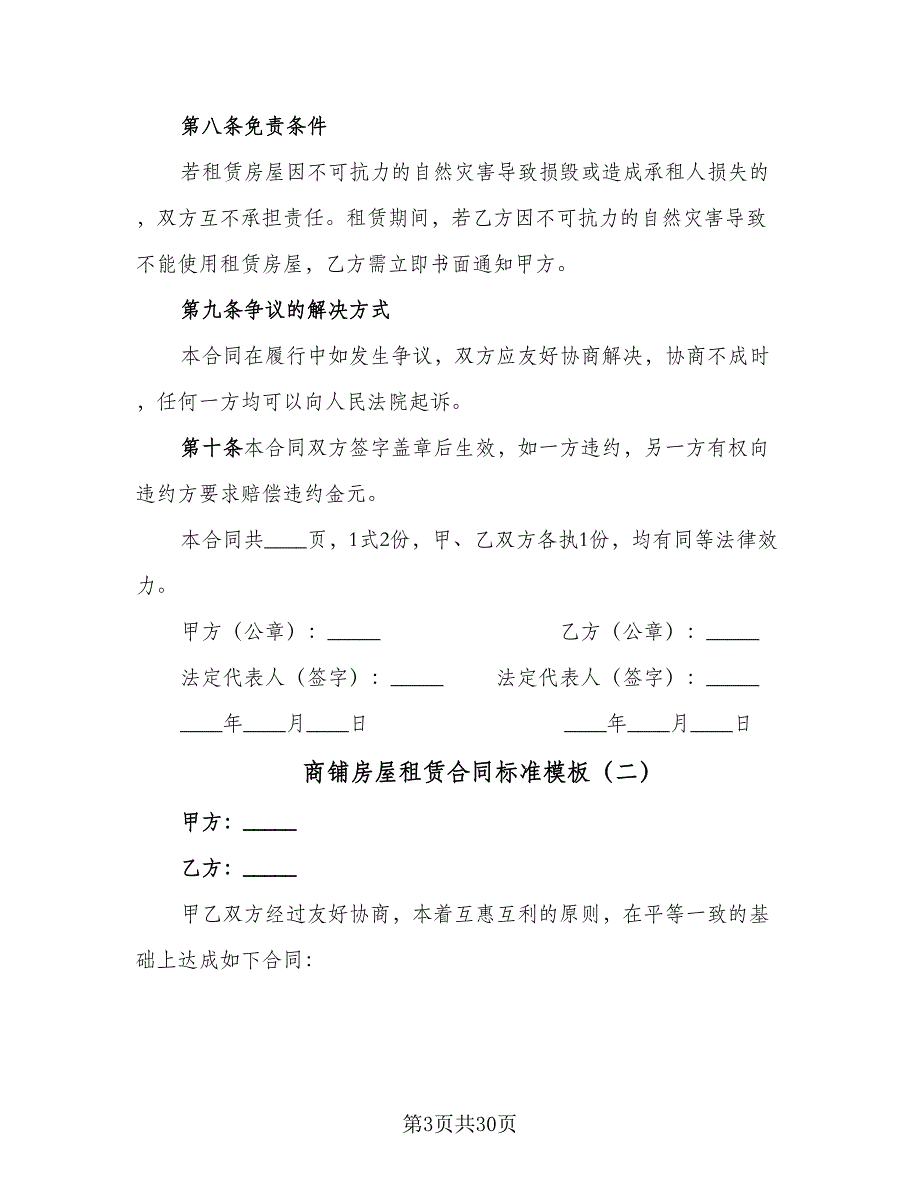 第八条免责条件
若租赁房屋因不可抗力的自然灾害导致损毁或造成承租人损失的
，双方互不承担责任。租赁期间，若乙方因不可抗力的自然灾害导致
不能使用租赁房屋，乙方需立即书面通知甲方。
第九条争议的解决方式
本合同在履行中如发生争议，双方应友好协商解决，协商不成时
，任何一方均可以向人民法院起诉。
第十条本合同双方签字盖章后生效，如一方违约，另一方有权向
违约方要求赔偿违约金元。
本合同共____页，1式2份，甲、乙双方各执1份，均有同等法律效
力。
甲方（公章）：_____ 乙方（公章）：_____
法定代表人（签字）：_____ 法定代表人（签字）：_____
____年____月____日 ____年____月____日
商铺房屋租赁合同标准模板（二）
甲方：_____
乙方：_____
甲乙双方经过友好协商，本着互惠互利的原则，在平等一致的基
础上达成如下合同：
第3页共30页